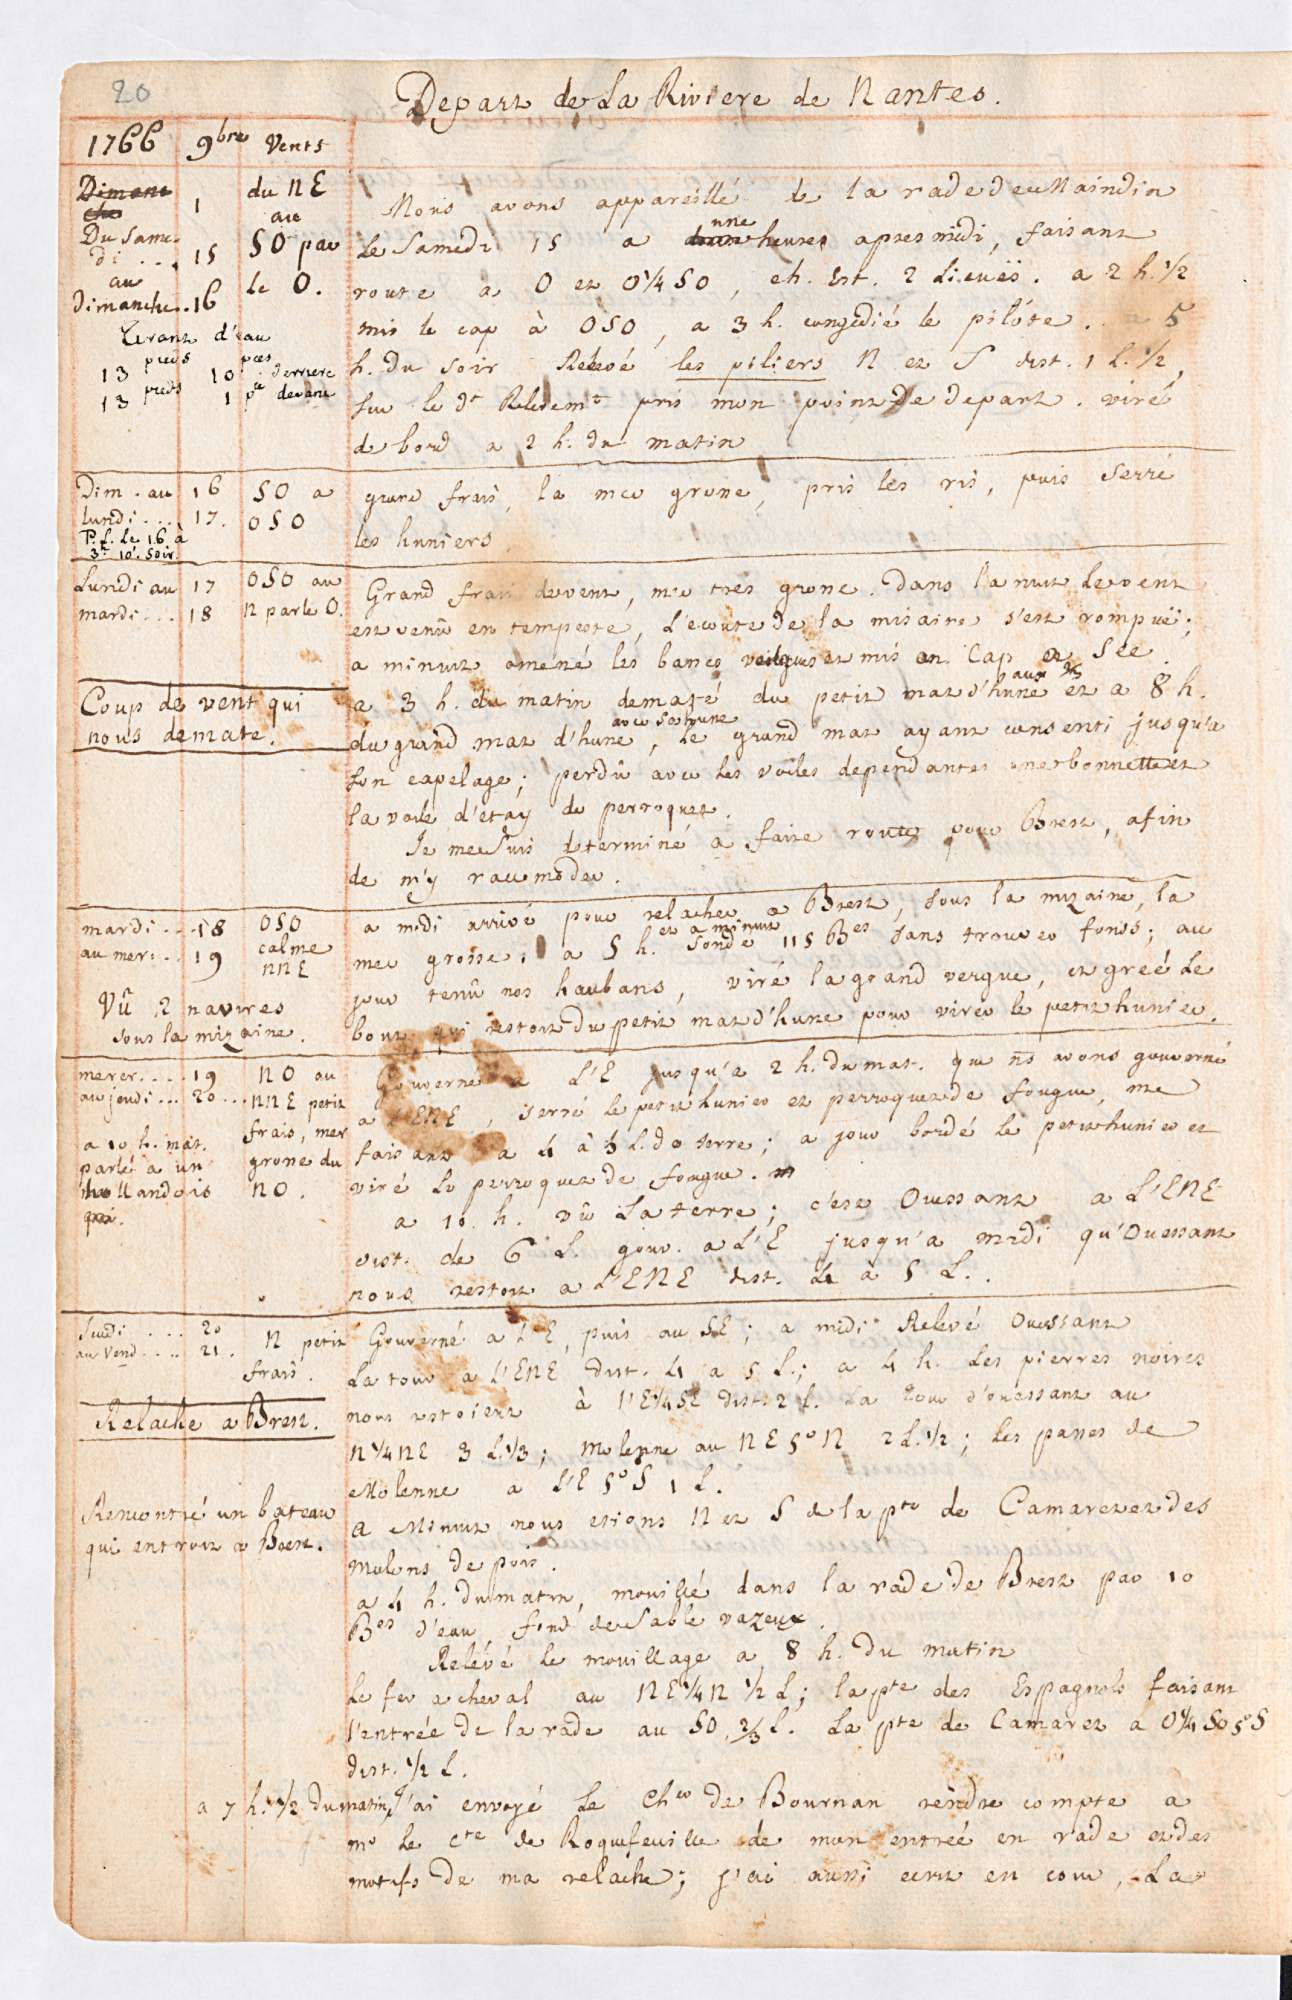 20
Depart de La Riviere de Nantes.
1766 9bre Vents
Dimanche 1
Du Same-
di .... 15
au
Dimanche.. 16
du NE
au
SO par
le O.
Tirant d'eau
13 pieds 10 pces derriere
13 pieds 1 pce devant
Nous avons appareillé de la rade de Maindin
Le Samedi 15 a une heures apres midi, faisant
route a O et O¼SO, ch. Est. 2 Lieuës. a 2 h. ½
mis le cap à OSO, a 3 h. congedié le pilóte. a 5
h. du soir Relevé les piliers N et S dist. 1 L. ½,
sur le dt Relevemt pris mon point de depart. viré
de bord a 2 h. du matin
Dim. au 16
lundi.... 17.
P.L. Le 16 à
3h 10' soir
SO a
OSO
grand frais, la mer grosse, pris les ris, puis serré
les huniers
Lundi au 17
mardi... 18
OSO au
N par le O.
Grand frais de vent, mer tres grosse. Dans la nuit le vent
est venû en tempeste, L'ecoute de la misaine s'est rompuë;
a minuit amené les basses vergues et mis en Cap a Sec
Coup de vent qui
nous demate.
a 3 h. du matin dematé du petit mat d'hune et a 8 h.
du grand mat d'hune, avec sa hune Le grand mat ayant consenti jusqu'a
son capelage; perdû avec les voiles dependantes une bonnette et
la voile d'étay de perroquet.
Je me suis determiné a faire route pour Brest, afin
de m'y racomoder.
mardi... 18
au mer... 19
OSO
calme
NNE
Vû 2 navires
sous la mizaine.
a midi arrivé pour relacher a Brest, sous la mizaine, la
mer grosse. a 5 h. et a minuit sondé 115 Bes sans trouver fonds; au
jour tenû nos haubans, viré la grand vergue, et gréé le
bout qui restoit du petit mat d'hune pour virer le petit hunier.
mercr.... 19
au jeudi... 20...
NO au
NNE petit
frais, mer
grosse du
NO.
a 10 h. mat.
parlé a un
hollandois
Gouverné a L'E jusqu'a 2 h. du mat. que ns avons gouverné
a l'ENE, serré le petit hunier et perroquet de fougue, me
faisant a 4 à 5 L. de terre; a jour bordé le petit hunier et
viré le perroquet de fougue.
a 10. h. vû La terre; c'est Ouessant a L'ENE
dist. de 6 L. gouv. a L'E jusqu'a midi qu'Ouessant
nous restoit a L'ENE dist. 4 à 5 L..
Jeudi.... 20
au Vend.... 21.
N petit
frais.
Gouverné a L'E, puis au SE; a midi Relevé Ouessant
La tour a L'ENE dist. 4 a 5 L.; a 4 h. Les pierres noires
nous restoient à l'E¼SE dist. 2 L. La tour d'ouessant au
N¼NE 3 L.⅓; Molenne au NE5°N 2 L.½; Les passes de
Molenne a L'E 5°S 1 L.
Relache a Brest.
Rencontré un bateau
qui entroit a Brest.
A Minuit nous etions N et S de la pte de Camaret et des
mulons de pois.
a 4 h. du matin, mouillé dans la rade de Brest par 10
Bes d'eau fond de sable vazeux.
Relévé le mouillage a 8 h. Du matin
Le fer a cheval au NE¼N ½ L; la pte des Espagnols faisant
l'entrée de la rade au SO ⅔ L. La pte de Camaret a O¼SO5°S
dist. ½ L.
a 7 h. ½ du matin, J'ai envoyé Le Cher de Bournan rendre compte a
mr Le Cte de Roquefeuille de mon entrée en rade et des
motifs de ma relache; j'ai aussi ecrit en cour, La